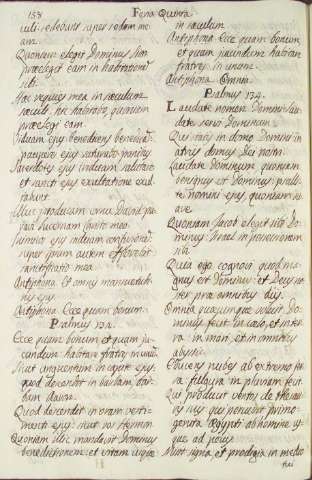 153
Feria Quinta
culi: sedebunt super sedem tu
am.
Quoniam elegit Dominus Sion
præelegit eam in habitationē
sibi.
Hæc requies mea in sæculum
sæculi: hic habitabo, quoniam
præelegi eam
Viduam ejus benedicens benedicā
pauperes ejus saturabo panibus
Sacerdotes ejus induam salutari
et sancti ejus exultatione exul
tabunt
Illuc producam cornu David pa
ravi lucernam Christo meo.
Inimicos ejus induam confusione
super ipsum autem efflorebit
sanctificatio mea.
Antiphona Et omnis mansuetudi
nis ejus
Antiphona Ecce quam bonum
Psalmus 132.
Ecce quam bonum et quam ju
cundum habitare fratres in unū.
Sicut unguentum in capite ejus
quod descendit in barbam, bar
bam Aaron
Quod descendit in oram vesti-
menti ejus: sicut ros Hermon
Quoniam illic mandavit Dominus
benedictionem: et vitam usque
in sæculum
Antiphona Ecce quam bonum
et quam jucundum habitare
fratres in unum.
Antiphona Omnia
Psalmus 134.
Laudate nomen Domini lau
date servi Dominum
Qui statis in domo Domini in
atriis domus Dei nostri
Laudate Dominum quoniam
bonus est Dominus: psalli
te nomini ejus, quoniam su
ave
Quoniam Jacob elegit sibi Do
minus: Israel in possessionem
sibi
Quia ego cognovi quod ma
gnus est Dominus: et Deus no
ster præ omnibus diis.
Omnia quæcumque voluit Do
minus fecit in cælo, et in ter
ra in mari, et in omnibus
abyssis
Educens nubes ab extremo ter
ræ fulgura in pluviam fecit
Qui producit ventos de thesau
ris suis qui percussit primo
genita Ægypti ab homine us
que ad pecus
Misit signa, et prodigia in medio
tui